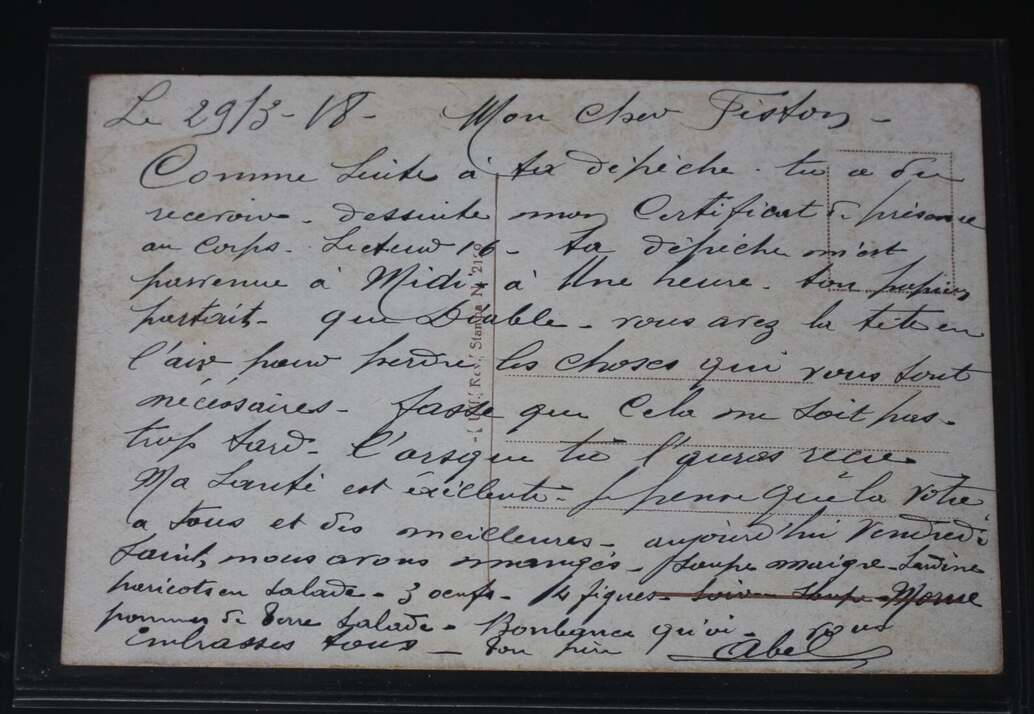 Le 29/3-18- Mon cher Fiston -
Comme suite à ta dépèche. tu a du
recevoir - dessuite mon Certificat de présence
au corps. Secteur 16 - ta dépèche m'est
parvenue à Midi - à Une heure. ton papier
partait - que Diable - vous avez la tête en
l'air pour perdre les choses qui vous sont
nécéssaires - fasse que Cela ne soit pas -
trop tard - l'orsque tu l'auras recu
Ma Santé est éxéllente - Je pense que la Votre
a tous et des meilleures - aujourd'hui Vendredi
Saint, nous avons mangés - Soupe maigre - Sardine
haricots en salade - 3 oeufs - 14 figues - soir - Soupe - Morue
pommes de Terre Salade - Bombance quoi - Vous
Embrasses tous - Ton père Abel
Rev. Stampa N. 21